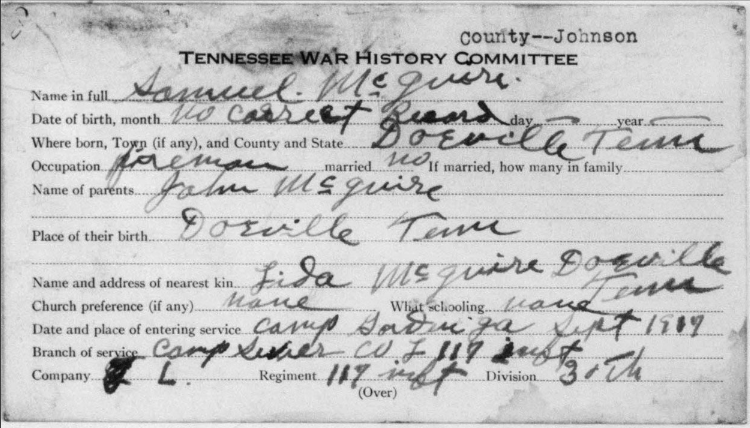 County--Johnson
TENNESSEE WAR HISTORY COMMITTEE
Name in full Samuel. McGuire.
Date of birth, month No Correct Record day year
Where born, Town (if any), and County and State Doeville Tenn
Occupation foreman married no If married, how many in family
Name of parents John McGuire
Place of their birth Doeville Tenn
Name and address of nearest kin Lida McGuire Doeville
Tenn
Church preference (if any) none What schooling none
Date and place of entering service Camp Gordon ga Sept 1917
Branch of service Camp Sevier CO L 117 inft
Company L. Regiment 117 inft Division 30th
(Over)